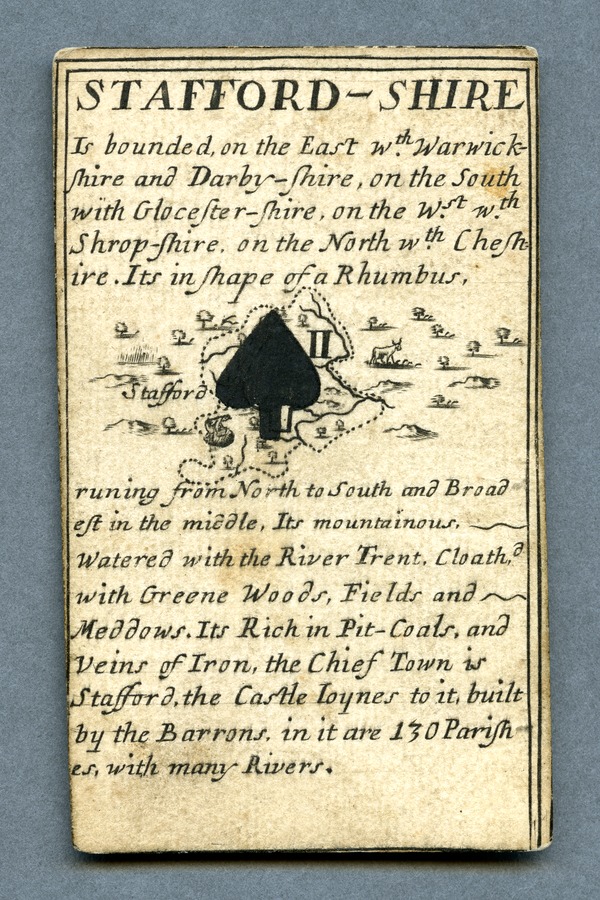 STAFFORD-SHIRE
Is bounded, on the East wth. Warwick-
ſhire and Darby-ſhire, on the South
with Gloceſter-ſhire, on the Wst. wth.
Shrop-ſhire. on the North wth Cheſh-
ire. Its in ſhape of a Rhumbus,
II
Stafford
runing from North to South and Broad
eſt in the middle, Its mountainous,
Watered with the River Trent, Cloath,d
with Greene Woods, Fields and
Meddows. Its Rich in Pit-Coals, and
Veins of Iron, the Chief Town is
Stafford, the Caſtle Ioynes to it, built
by the Barrons, in it are 130 Pariſh
es, with many Rivers.